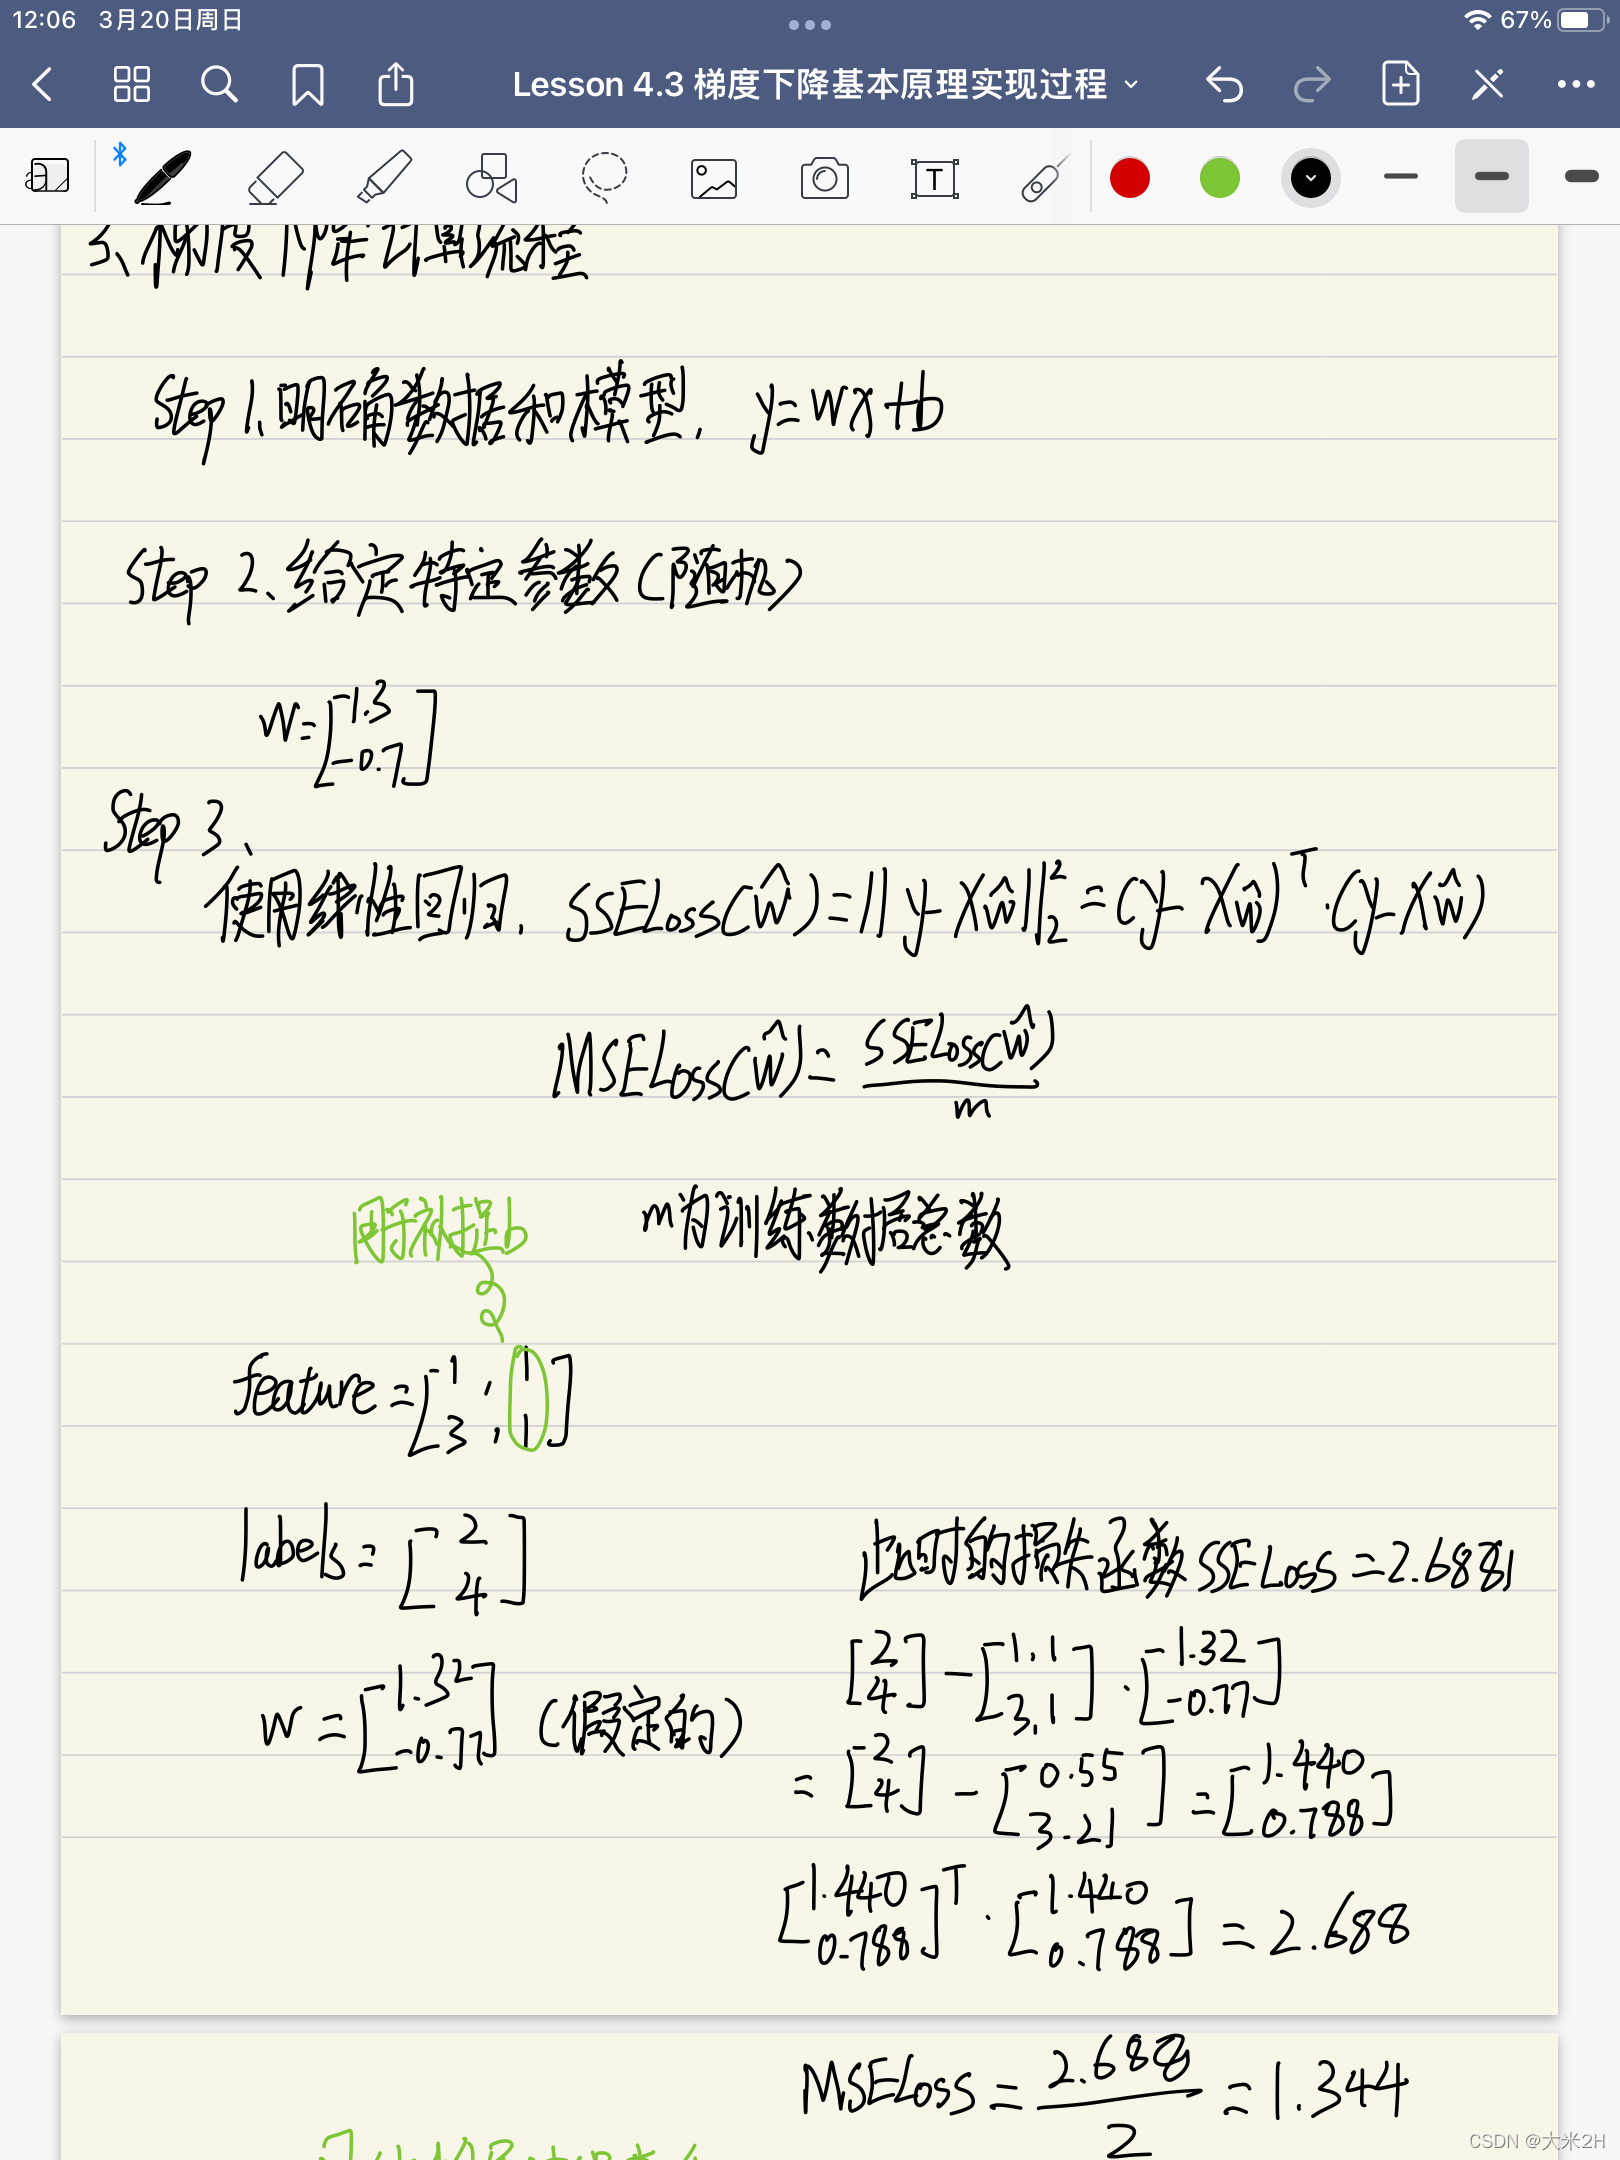 12:06 3月20日周日
67%
Lesson 4.3 梯度下降基本原理实现过程
T
3、梯度下降计算流程
Step 1、明确数据和模型, y=wx+b
Step 2、给定特定参数(随机)
w=[1.3
-0.7]
Step 3、
使用线性回归, SSELoss(ŵ)=||y-Xŵ||₂²=(y-Xŵ)ᵀ·(y-Xŵ)
MSELoss(ŵ)= SSELoss(ŵ)
m
用于补捉b m为训练数据总数
feature=[1,1
3,1]
labels=[2
4]
此时的损失函数SSELoss=2.6881
[2
4]-[1,1
3,1]·[1.32
-0.77]
w=[1.32
-0.77](假定的)
=[2
4]-[0.55
3.21]=[1.440
0.788]
[1.440
0.788]ᵀ·[1.440
0.788]=2.688
MSELoss=2.688
2
=1.344
CSDN @大米2H